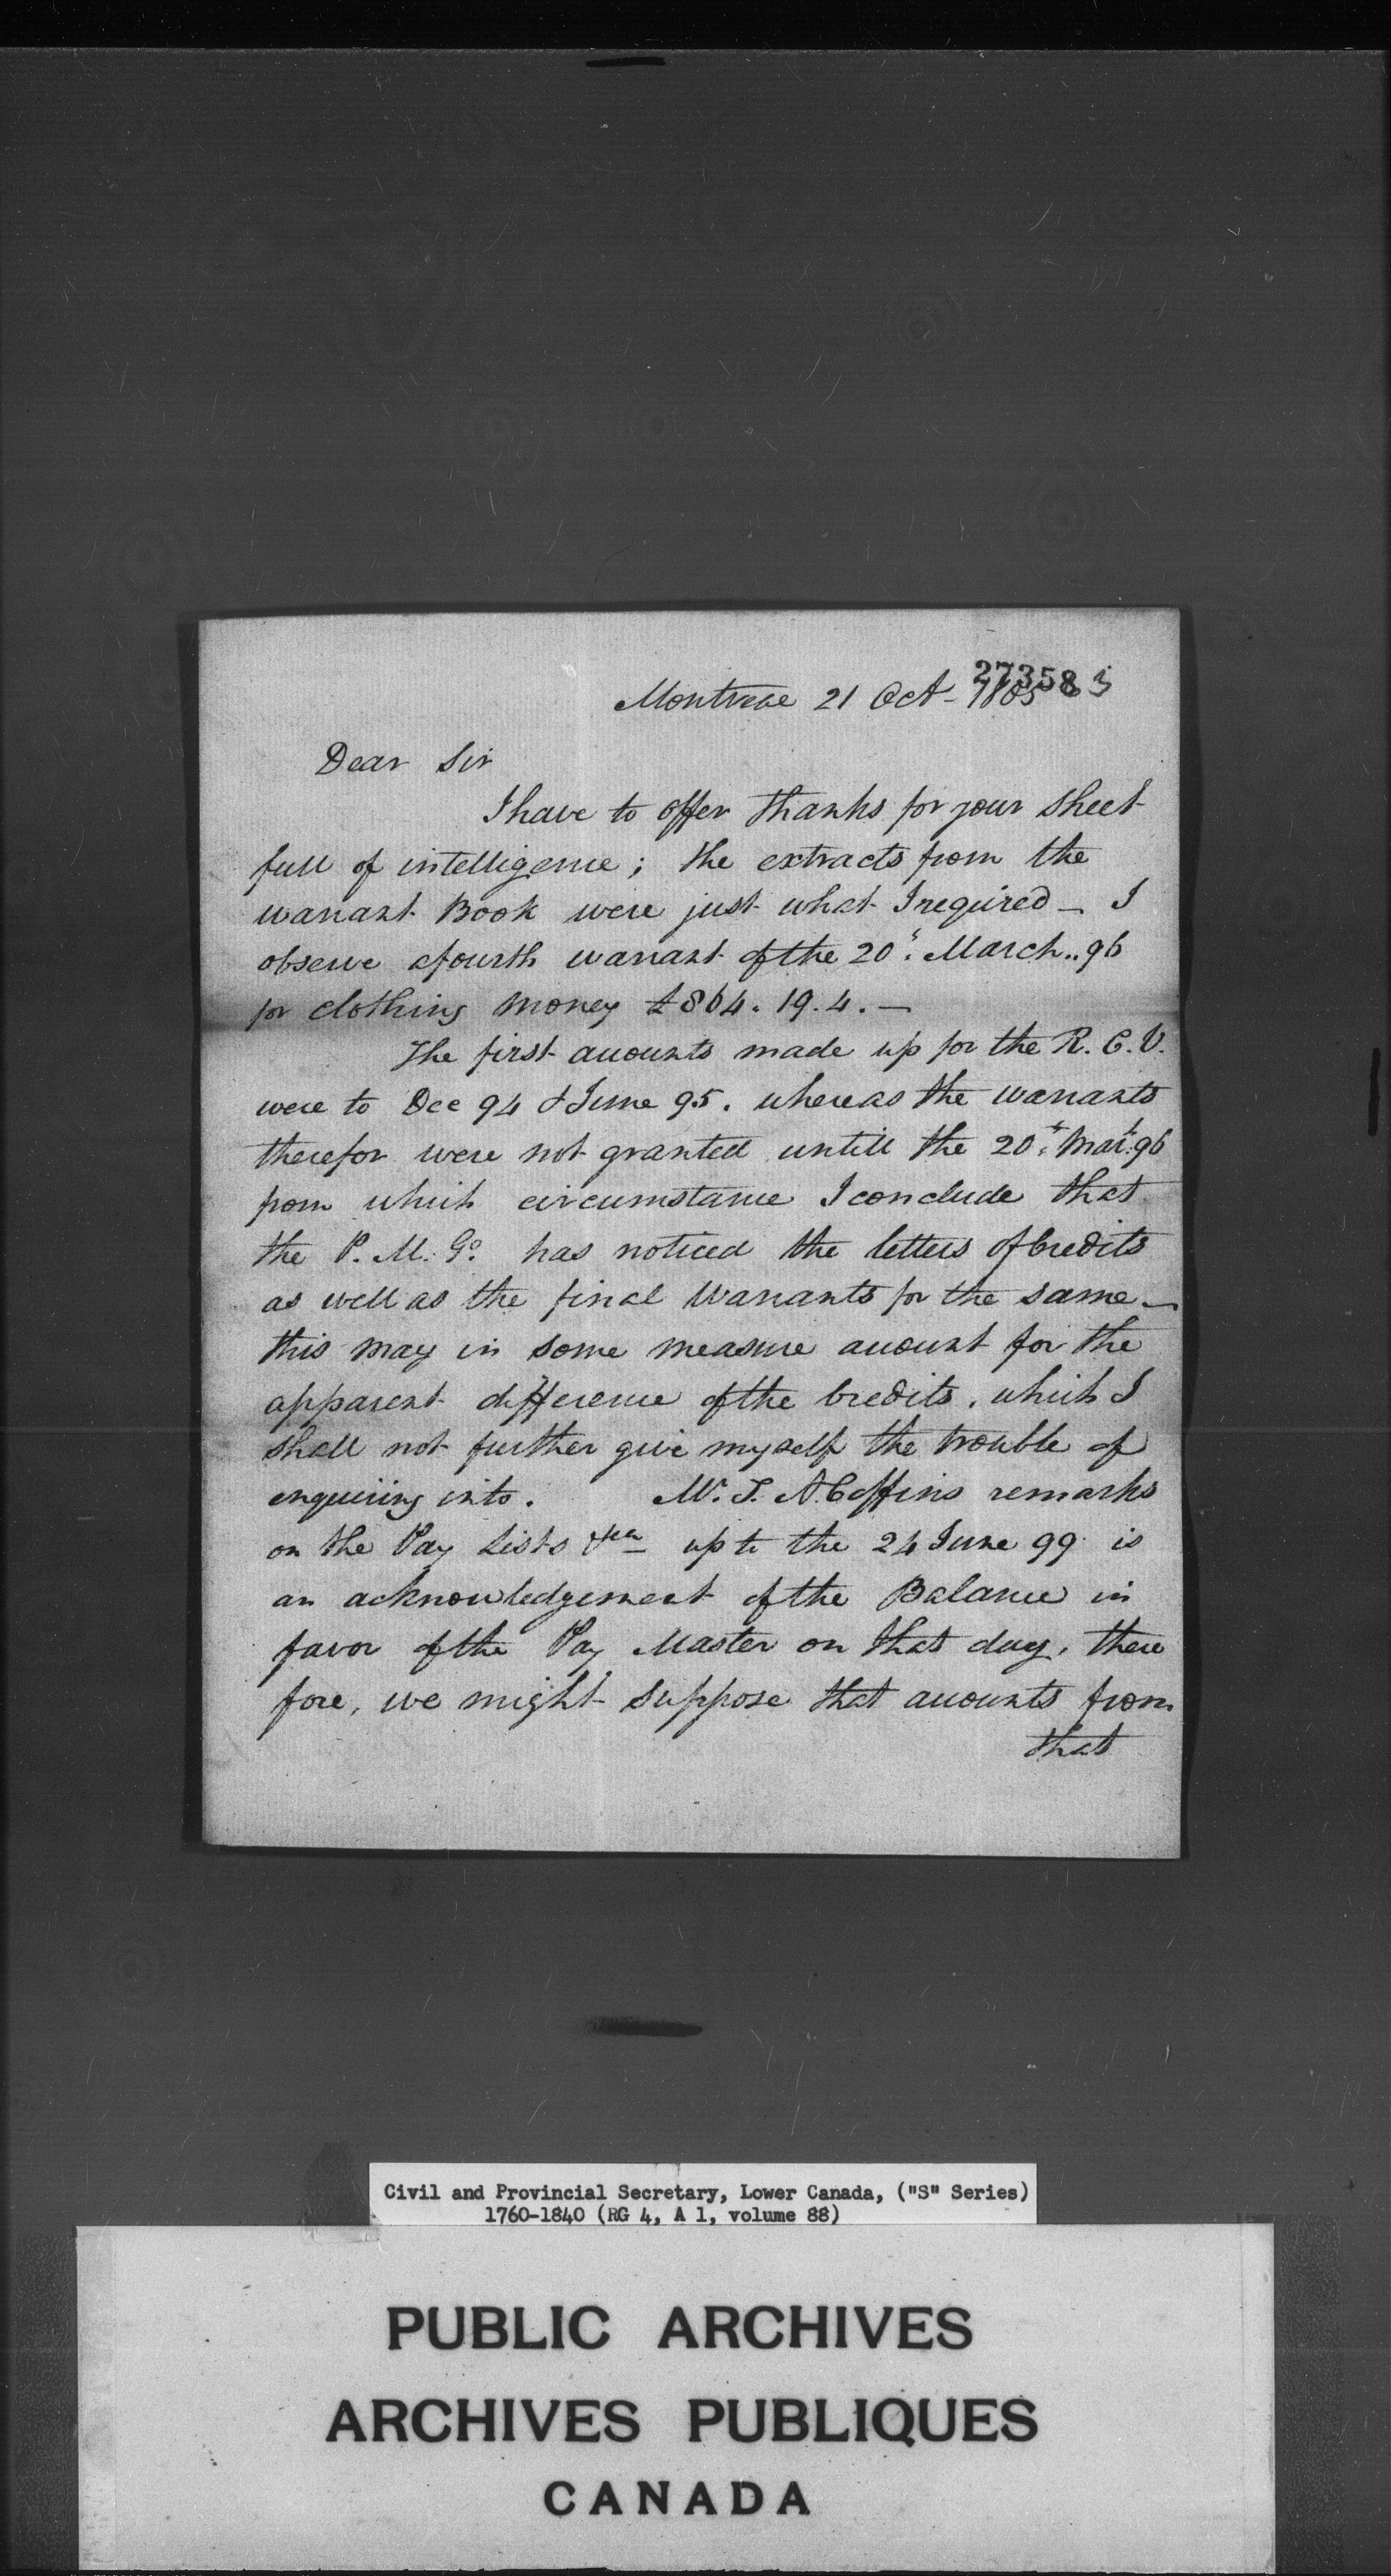 27358 3
Montreal 21 Oct - 1805
Dear Sir
I have to offer thanks for your sheet
full of intelligence; the extracts from the
warrant Book were just what I required - I
observe a fourth warrant of the 20th March .. 96
for clothing money £864. 19. 4. -
The first accounts made up for the R. C. V.
were to Dec 94 & June 95. whereas the warrants
therefor were not granted untill the 20th Mar. 96
from which circumstance I conclude that
the P. M. Gl has noticed the letters of Credits
as well as the final Warrants for the same -
this may in some measure account for the
apparent difference of the Credits, which I
shall not further give myself the trouble of
enquiring into. Mr. T. A. Coffins remarks
on the Pay Lists &ca up to the 24 June 99 is
an acknowledgement of the Balance in
favor of the Pay Master on that day, there
fore, we might suppose that accounts from
that
Civil and Provincial Secretary, Lower Canada, ("S" Series)
1760-1840 (RG 4, A 1, volume 88)
PUBLIC ARCHIVES
ARCHIVES PUBLIQUES
CANADA